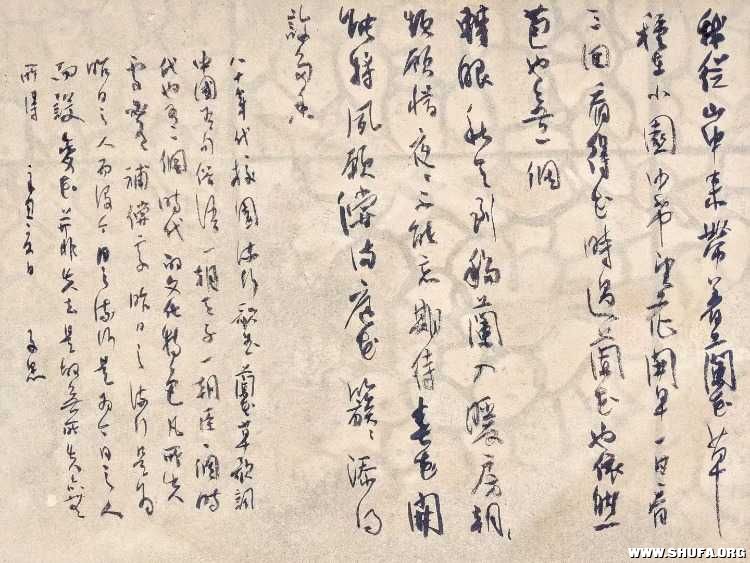 我從山中來帶着蘭花草
種在小園中希望花開早一日看
三回看得花時過蘭花也依然
苞也無一個
轉眼秋天到移蘭入暖房朝〻
頻顧惜夜〻不能忘期待春花開
能將夙願償滿庭花簇〻添得
許多香
八十年代校園流行歌曲蘭花草歌詞
中國有句俗語一朝天子一朝臣一個時
代也有一個時代的文化特色凡所失
補償 昨日之流行是為
昨日之人而設今日之流行是為今日之人
而設 失去是的無所失亦無
所得
WWW.SHUFA.ORG